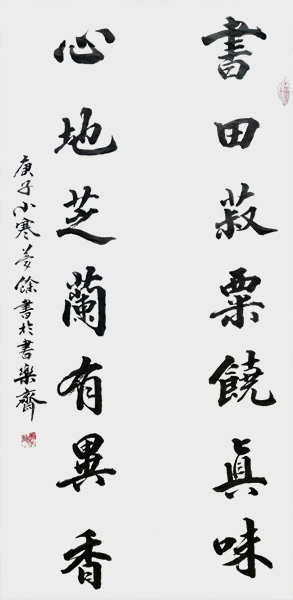 書田菽粟饒真味
心地芝蘭有異香
庚子小寒夢餘書於書樂齋